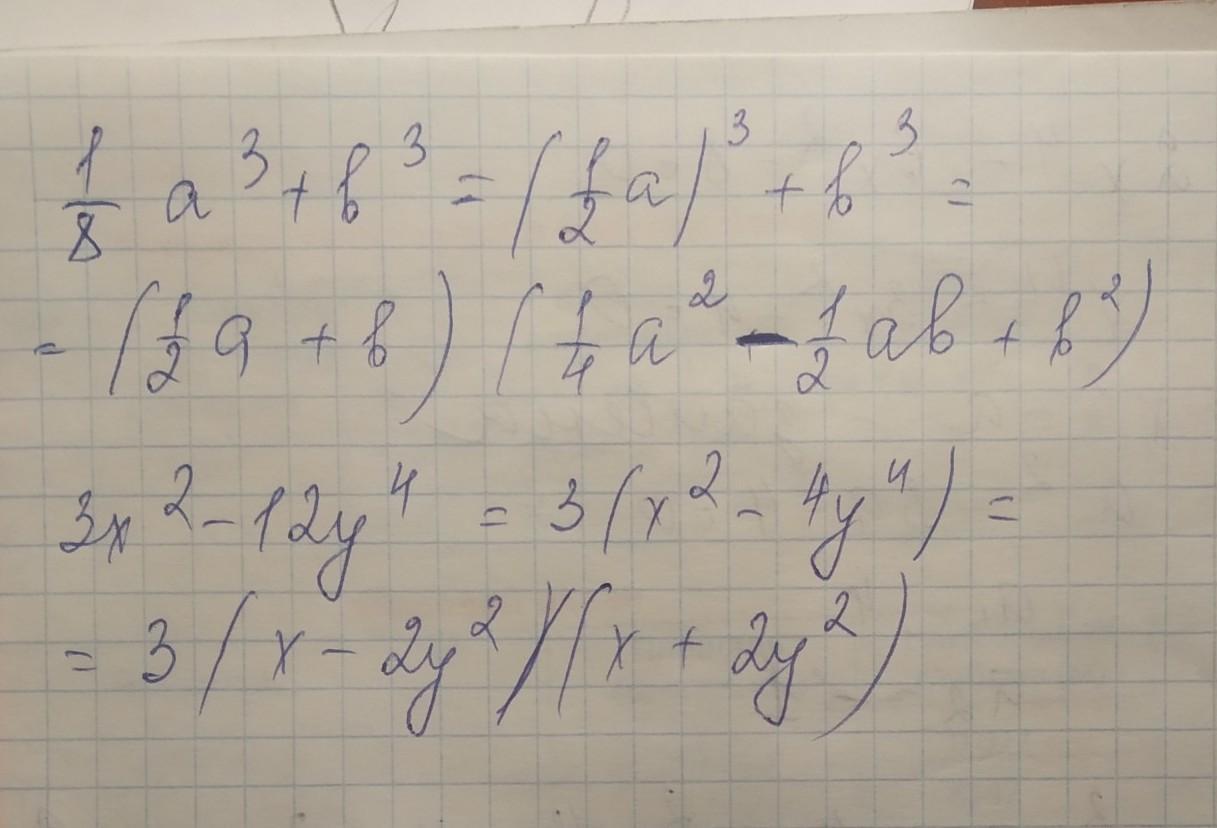 1/8 a³ + b³ = (1/2 a)³ + b³ =
= (1/2 a + b) (1/4 a² - 1/2 ab + b²)
3x² - 12y⁴ = 3(x² - 4y⁴) =
= 3(x - 2y²)(x + 2y²)